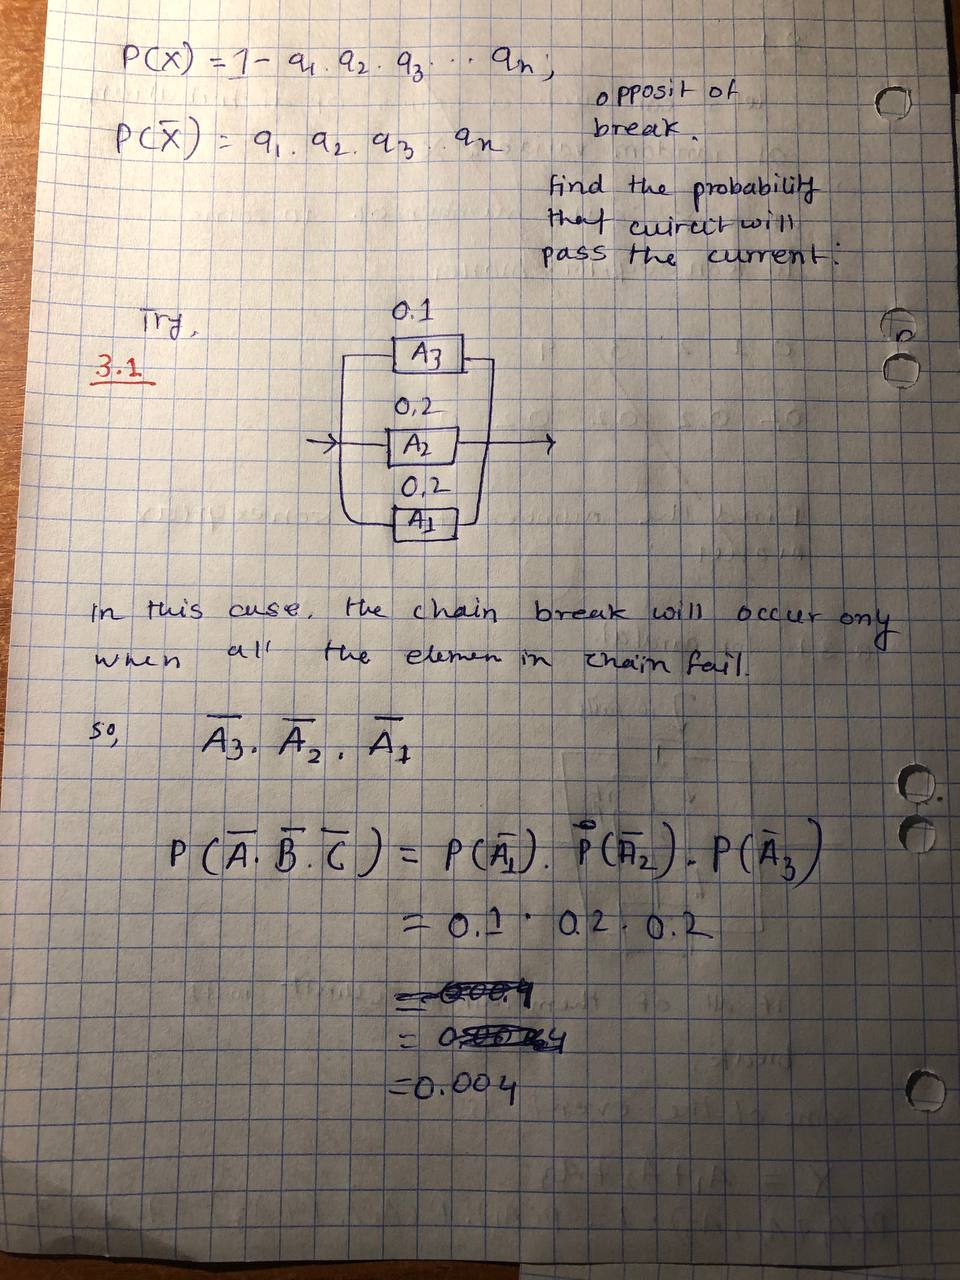 P(X) = 1 - q₁. q₂. q₃ ... qn;
P(X̄) = q₁. q₂. q₃ . qn
opposit of
break.
find the probability
that cuircit will
pass the current:
Try,
3.1
0.1
A3
0,2
A2
0,2
A1
in this case, the chain break will occur only
when all the elemen in chain fail.
so, A̅3. A̅2. A̅1
P(A̅. B̅. C̅) = P(A̅1). P(A̅2). P(A̅3)
= 0.1 · 0.2 . 0.2
= 0.004